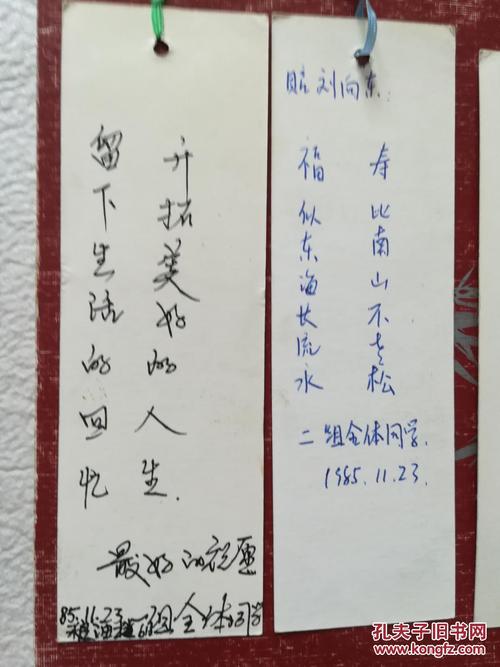 留下生活的回忆
开拓美好的人生.
最好的祝愿
85.11.23 一组全体同学
赠刘向东:
福似东海长流水
寿比南山不老松
二组全体同学.
1985.11.23.
孔夫子旧书网
www.kongfz.com